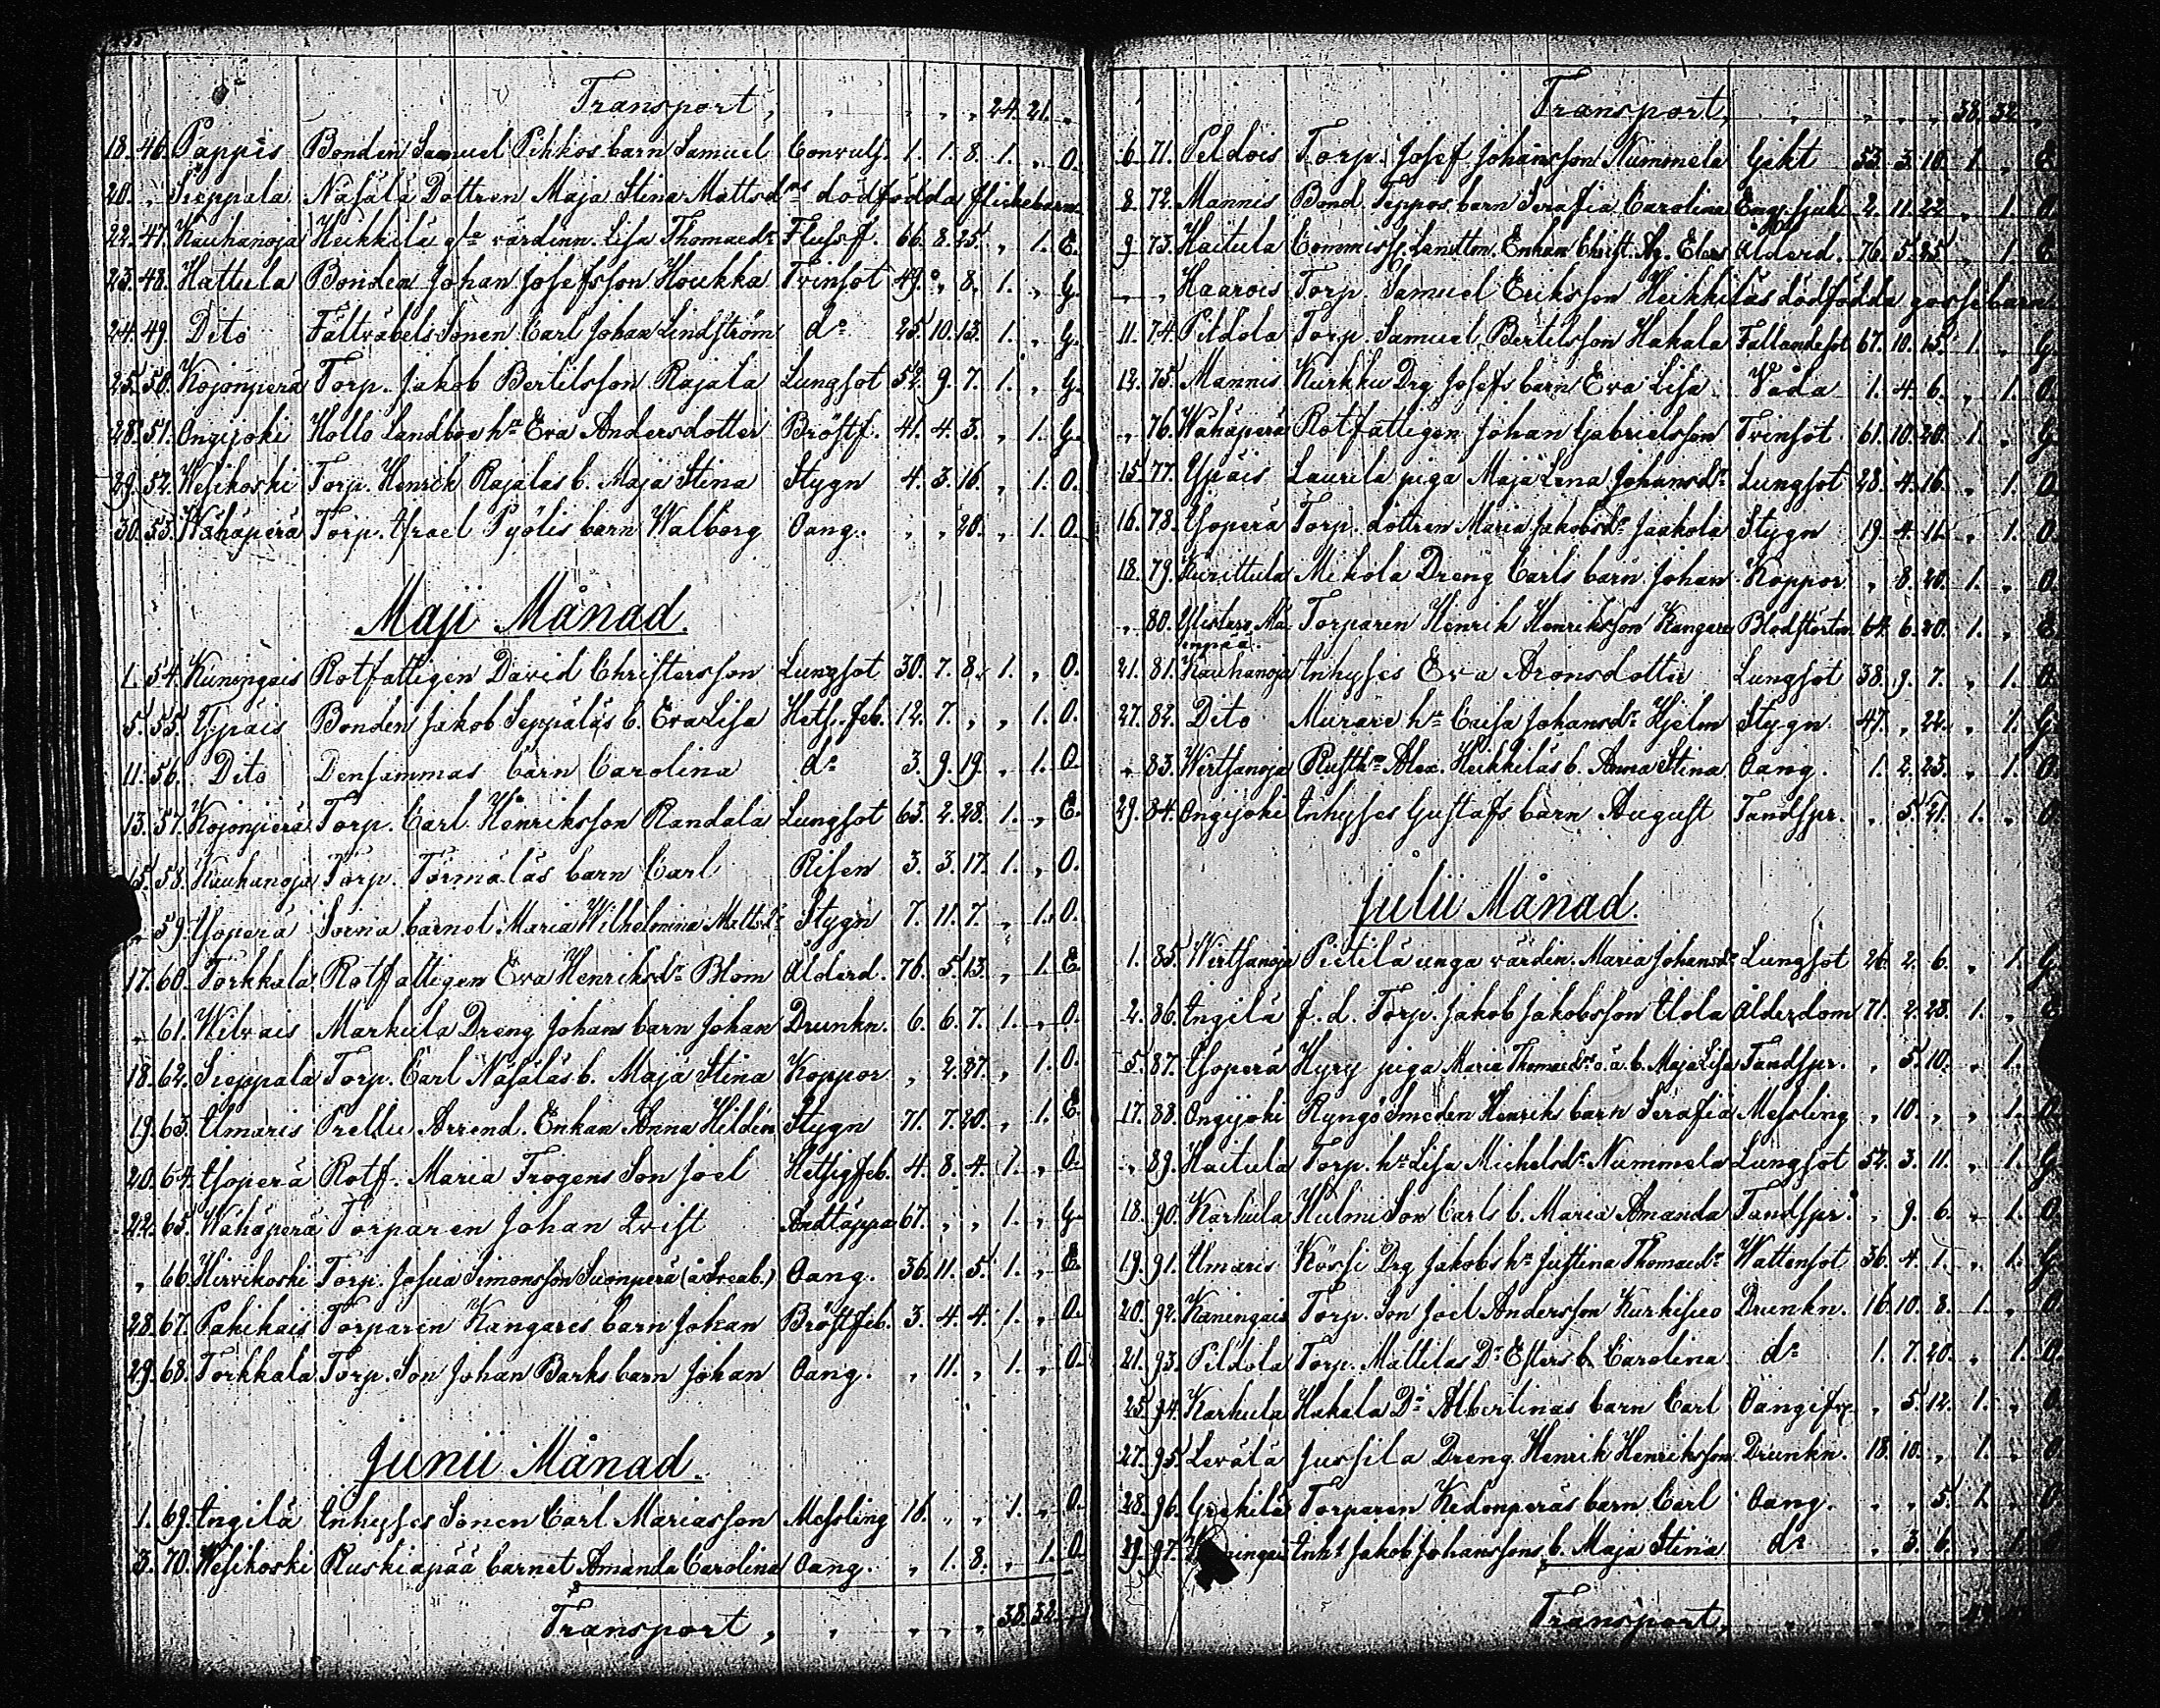 Transport, " " " " 24. 21. "
18. 46. Pappis Bonden Samuel Pihkos barn Samuel Convuls. 1. 1. 8. 1. " O.
20. " Sieppala Näsälä Dottren Maja Stina Mattsdrs dödfödda flickebarn
22. 47. Kauhanoja Heikkilä gla värdinn. Lisa Thomaedr Flussf. 66. 8. 25. " 1. E.
23. 48. Hattula Bonden Johan Josefsson Houkka Tvinsot 49. " 8. 1. " G.
24. 49. Dito Fältväbels Sonen Carl Johan Lindström do 25. 10. 13. 1. " G.
25. 50. Kojonperä Torp. Jakob Bertilsson Rajala Lungsot 52. 9. 7. 1. " G.
28. 51. Ongijoki Hollo Landboe hu Eva Andersdotter Bröstf. 41. 4. 3. " 1. G.
29. 52. Wesikoski Torp. Henrik Rajalas b. Maja Stina Stygn 4. 3. 16. " 1. O.
30. 53. Wähäperä Torp. Israel Pyölis barn Walborg Oang. " " 20. " 1. O.
Maji Månad.
1. 54. Kuningais Rotfattigen David Christersson Lungsot 30. 7. 8. 1. " O.
5. 55. Ypäis Bonden Jakob Seppäläs b. Eva Lisa Hets. feb. 12. 7. " " 1. O.
11. 56. Dito Densammas barn Carolina do 3. 9. 19. " 1. O.
13. 57. Kojonperä Torp. Carl Henriksson Randala Lungsot 63. 2. 28. 1. " E.
15. 58. Kauhanoja Torp. Törmäläs barn Carl Risen 3. 3. 17. 1. " O.
" 59. Isoperä Sorna barnet Maria Wilhelmina Mattsdr Stygn 7. 11. 7. " 1. O.
17. 60. Torkkala Rotfattigen Eva Henriksdr Blom Ålderd. 76. 5. 13. " 1. E.
" 61. Wilvais Markula Dreng Johans barn Johan Drunkn. 6. 6. 7. 1. " O.
18. 62. Sieppala Torp. Carl Näsäläs b. Maja Stina Koppor " 2. 27. " 1. O.
19. 63. Ilmaris Prellu Arrend. Enkan Anna Hildin Stygn 71. 7. 20. " 1. E.
20. 64. Isoperä Rotf. Maria Trogens Son Joel Hetsig feb. 4. 8. 4. 1. " O.
22. 65. Wähäperä Torparen Johan Qvist Andtäppa 67. " " 1. " G.
" 66. Hirvikoski Torp. Josua Simonsson Suonperä Oang. 36. 11. 5. 1. " E.
28. 67. Pahikais Torparen Kangares barn Johan Bröstfeb. 3. 4. 4. 1. " O.
29. 68. Torkkala Torp. Son Johan Barks barn Johan Oang. " 11. " 1. " O.
Junii Månad.
1. 69. Ingilä Inhyses Sonen Carl Mariasson Messling 16. " " 1. " O.
3. 70. Wesikoski Ruskiapää barnet Amanda Carolina Oang. " 1. 8. " 1. O.
Transport, " " " " 38. 32. "
Transport, " " " " 38. 32. "
6. 71. Peldois Torp. Josef Johansson Nummela Gikt 53. 3. 10. 1. " E.
8. 72. Mannis Bond Teppos barn Serafia Carolina Eng. sjuk. 2. 11. 22. " 1. O.
9. 73. Haitula Commiss. Landtm. Enkan Christ. Ålderd. 76. 5. 25. " 1. E
" " Haarois Torp. Samuel Eriksson Heikkiläs dödfödda gossebarn
11. 74. Pildola Torp. Samuel Bertilsson Hakala Fallandesot 67. 10. 15. 1. " G.
12. 75. Mannis Kurkku Drg Josefs barn Eva Lisa Våda 1. 4. 6. " 1. O.
" 76. Wähäperä Rotfattigen Johan Gabrielsson Tvinsot 61. 10. 20. 1. " G
15. 77. Ypäis Laurila piga Maja Lena Johansdr Lungsot 28. 4. 16. " 1. O.
16. 78. Isoperä Torp. dottren Maria Jakobsdr Jaakola Stygn 19. 4. 11. " 1. O.
18. 79. Kurittula Mikola Dreng Carls barn Johan Koppor " 8. 20. 1. " O.
" 80. Ylistaro Mä- Torparen Henrik Henriksson Kangare Blodstörtn. 64. 6. 20. 1. " E.
enpää.
21. 81. Kauhanoja Inhyses Eva Aronsdotter Lungsot 38. 9. 7. " 1. O.
27. 82. Dito Murare hu Caisa Johansdr Hjelm Stygn 47. " 22. " 1. G.
" 83. Wirtsanoja Rusth. Alex. Heikkiläs b. Anna Stina Oang. 1. 2. 23. " 1. O.
29. 84. Ongijoki Inhyses Gustafs barn August Tandspr. " 5. 21. 1. " O.
Julii Månad.
1. 85. Wirtsanoja Pietilä unga värdin. Maria Johansdr Lungsot 26. 2. 6. " 1. G.
2. 86. Ingilä f. d. Torp. Jakob Jakobsson Uola Ålderdom 71. 2. 23. 1. "
5. 87. Isoperä Hyry piga Maria Thomaedrs o. ä. b. Maja Lisa Tandspr. " 5. 10. " 1.
17. 88. Ongijoki Ryngö Smeden Henriks barn Serafia Messling " 10. " " 1. O.
" 89. Haitula Torp. hu Lisa Michelsdr Nummela Lungsot 52. 3. 11. " 1. G.
18. 90. Karhula Hulmi Son Carls b. Maria Amanda Tandspr. " 9. 6. " 1. O.
19. 91. Ilmaris Körsi Drg Jakobs hu Justina Thomaedr Wattensot 36. 4. 1. " 1. G.
20. 92. Kuningais Torp. Son Joel Andersson Kurkisuo Drunkn. 16. 10. 8. 1. " O.
21. 93. Pildola Torp. Mattilas Dr Esters b. Carolina do 1. 7. 20. " 1. O.
25. 94. Karhula Hakala Dr Albertinas barn Carl Oangifv. " 5. 12. 1. " O.
27. 95. Levälä Jussila Dreng Henrik Henriksson Drunkn. 18. 10. " 1. " O.
28. 96. Grekilä Torparen Kedonperäs barn Carl Oang. " " 5. 1. " O.
29. 97. Inhs Jakob Johanssons b. Maja Stina do " 3. 6. " 1.
Transport, " " " "